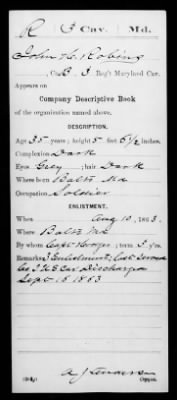 R 3 Cav. Md.
John H. Robins
, Co. B, 3 Reg't Maryland Cav.
Appears on
Company Descriptive Book
of the organization named above.
DESCRIPTION.
Age 35 years; height 5 feet 6½ inches.
Complexion Dark
Eyes Grey; hair Dark
Where born Balto Md
Occupation Soldier
ENLISTMENT.
When Aug 10, 1863.
Where Balto Md.
By whom Capt ; term 3 y'rs.
Remarks: Enlistment; Last served
Co I U S Cav Discharged
Sept 15 1863
Copyist.